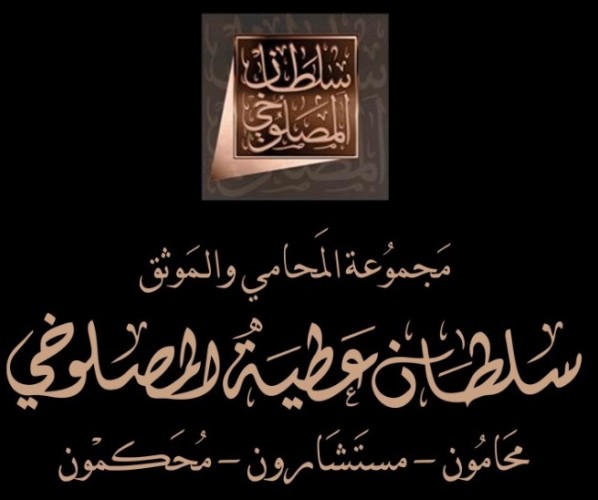 سلطان
المصلوخي
مَجموُعة المَحامي والموَثق
سلطان عَطية المصلوخي
محَامُون - مستَشَارون - مُحَكمْون